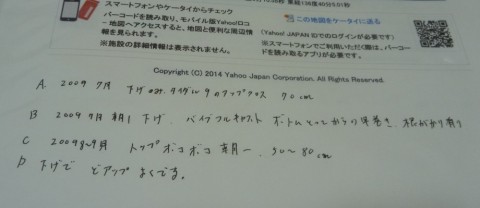 スマートフォンやケータイからチェック
バーコードを読み取り、モバイル版Yahoo!ロコ
- 地図へアクセスすると、地図と便利な周辺情
報を見られます。
※施設の詳細情報は表示されません。
この地図をケータイに送る
(Yahoo! JAPAN IDでのログインが必要です)
※スマートフォンでご利用いただく際は、バーコー
ドを読み取るアプリが必要です。
Copyright (C) 2014 Yahoo Japan Corporation. All Rights Reserved.
A 2009 7月 下げ のアップクロス 70cm
B 2009 7月 朝1 下げ、バイブフルキャスト ボトムとってからの早巻き、根がかり有り
C 2009 8~9月 トップボコボコ 朝一、50~80cm
D 下げで どアップ よくでる。